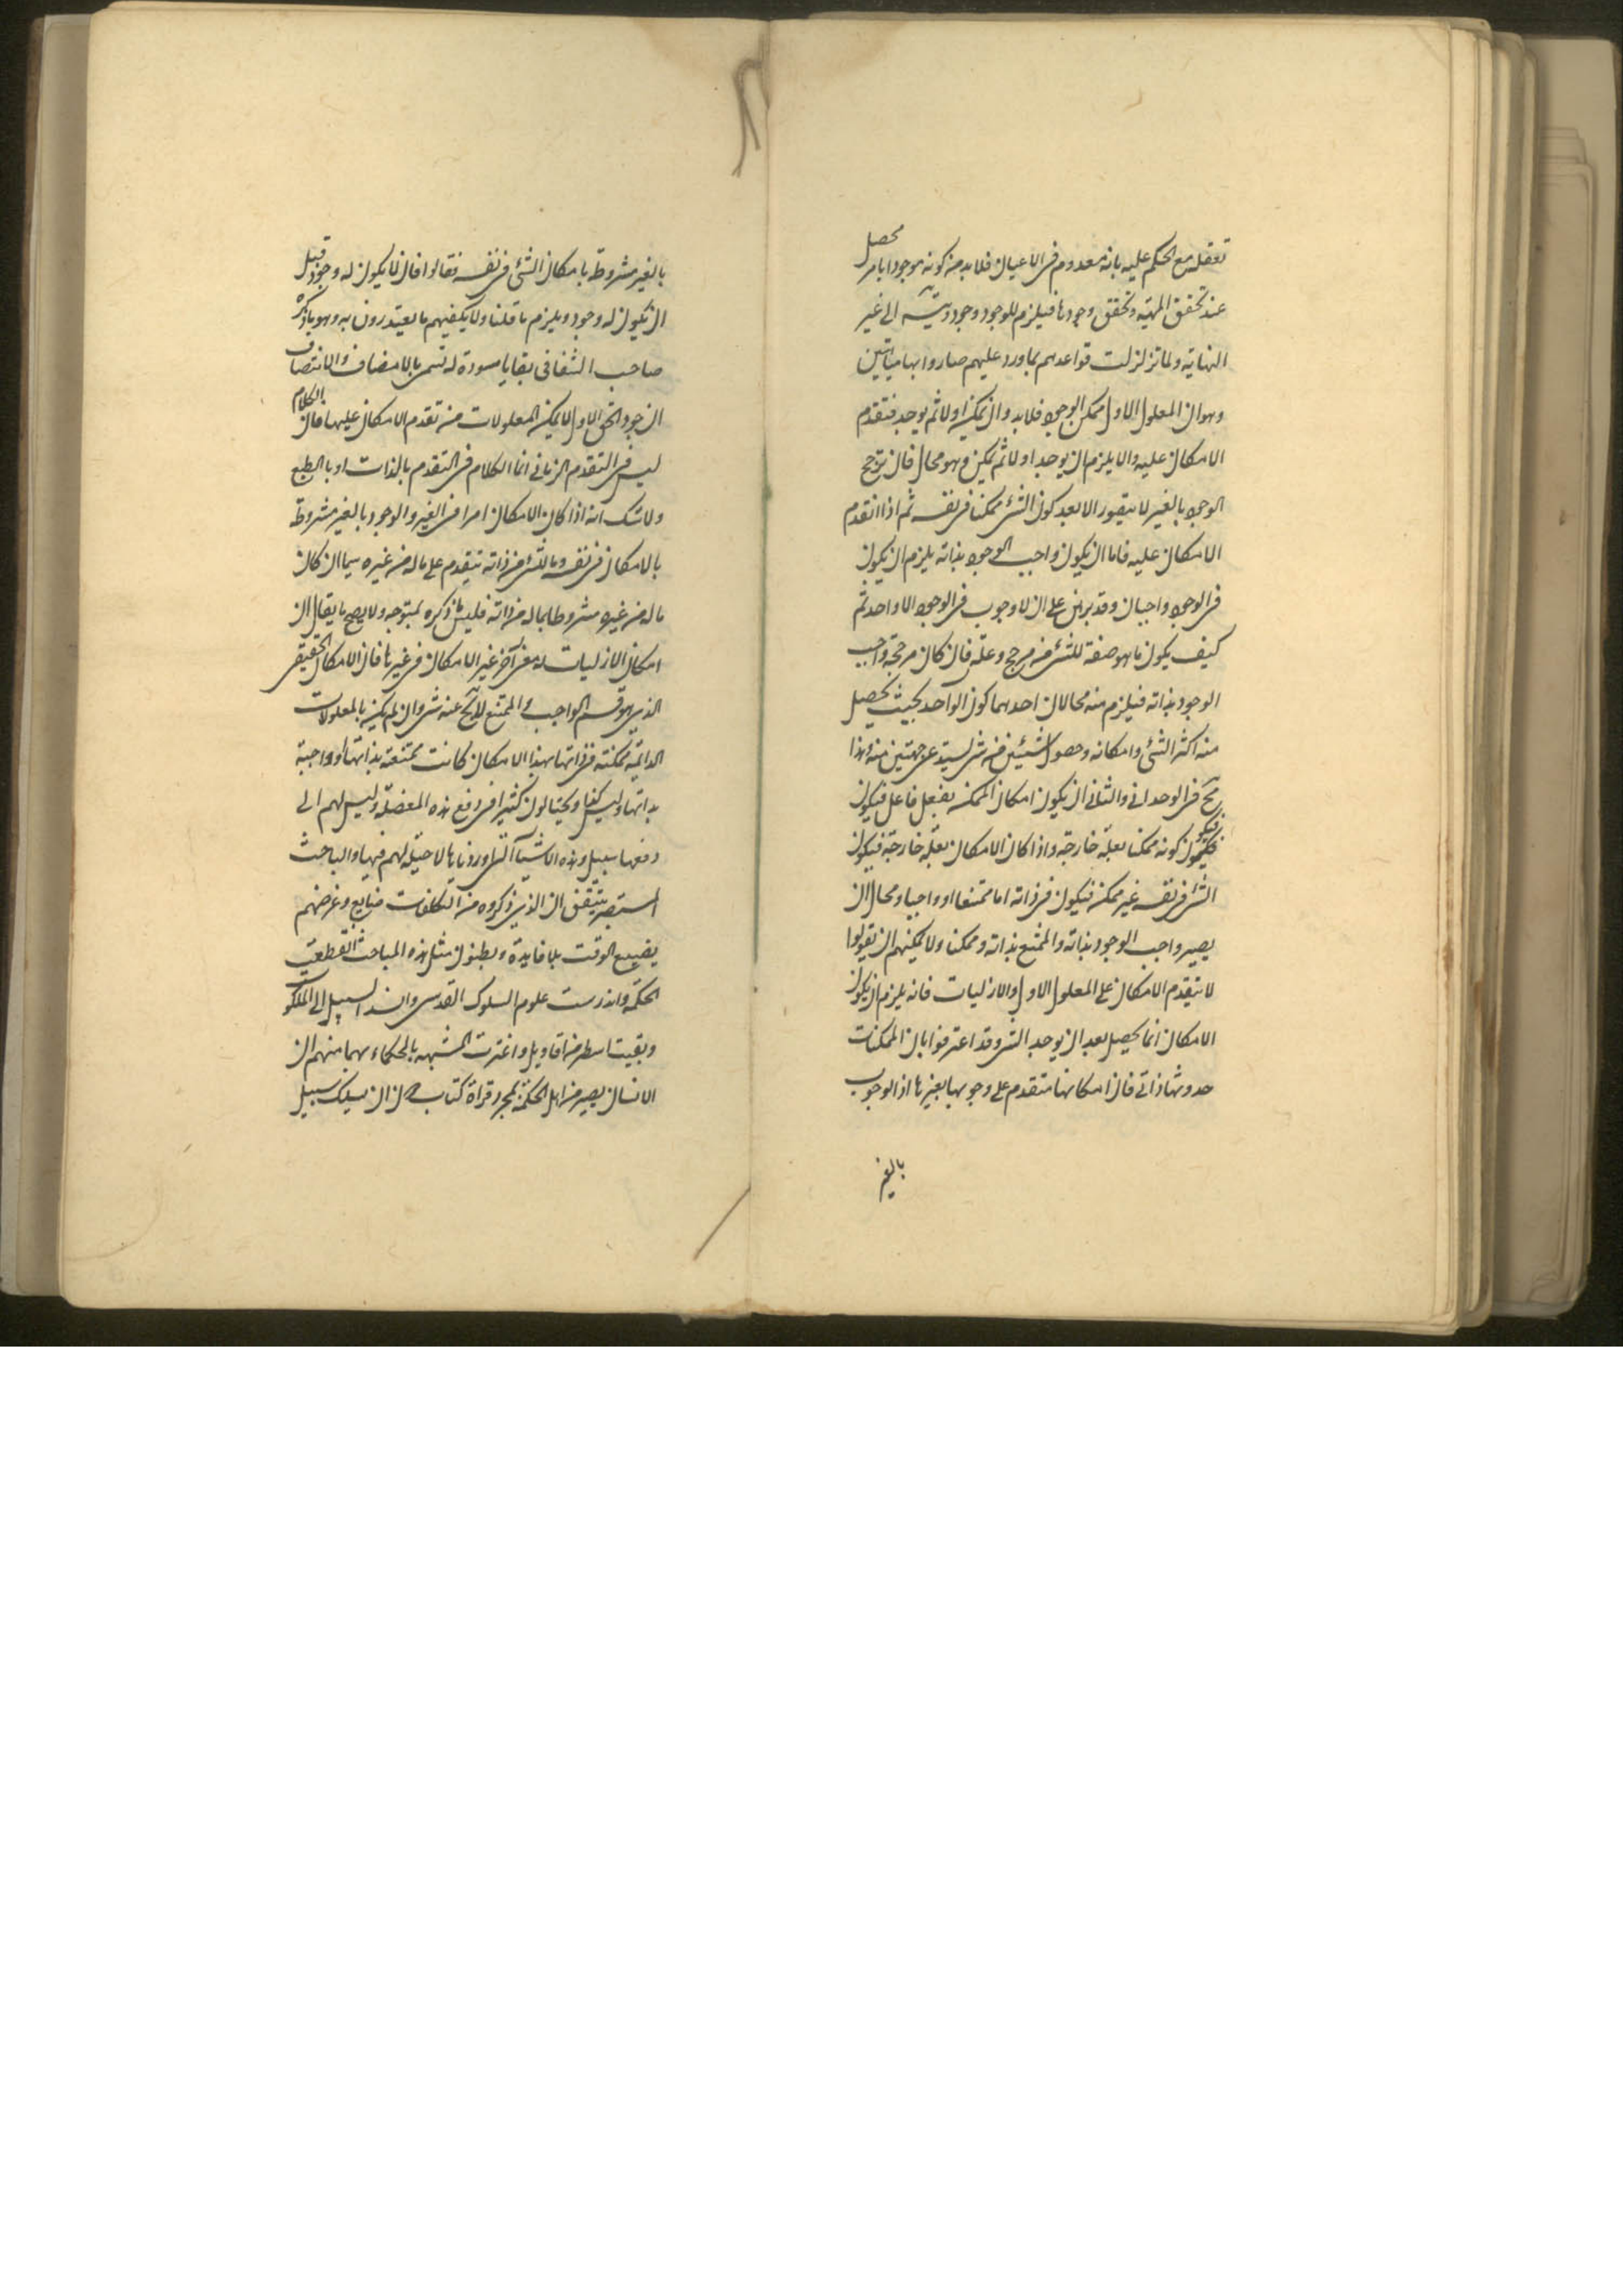 تعقله مع الحكم عليه بانه معدوم فى الاعيان فلابد من كونه موجودا بامر محصل
عند تحقق المهية وتحقق وجودها فيلزم للوجود وجود ونسبته الى غير
النهاية ولما تزلزلت قواعدهم بما ورد عليهم صاروا بها
وهو ان المعلول الاول ممكن الوجود فلابد وان يمكن اولا ثم يوجد فتقدم
الامكان عليه والا يلزم ان يوجد اولا ثم يمكن وهو محال فان ترجح
الوجود بالغير لا يتصور الا بعد كون الشئ ممكنا فى نفسه ثم اذا تقدم
الامكان عليه فاما ان يكون واجب الوجود بذاته يلزم ان يكون
فى الوجود واجبان وقد برهن على ان لا وجوب فى الوجود الا واحد ثم
كيف يكون ما هو صفة للشئ من مرجح وعلة فان كان مرجحه واجب
الوجود بذاته فيلزم منه محالان احدهما كون الواحد بحيث يحصل
منه اكثر الشئ وامكانه وحصول شيئين من شئ يستدعى جهتين منه وهذا
مح فى الوحدانى والثانى ان يكون امكان الممكن بفعل فاعل فيكون
فيكون كونه ممكنا بعلة خارجة واذا كان الامكان بعلة خارجة فيكون
الشئ فى نفسه غير ممكن فيكون فى ذاته اما ممتنعا او واجبا ومحال ان
يصير واجب الوجود بذاته والممتنع بذاته وممكنا ولا يمكنهم ان يقولوا
لا يتقدم الامكان على المعلول الاول والازليات فانه يلزم ان يكون
الامكان انما يحصل بعد ان يوجد الشئ وقد اعترفوا بان الممكنات
حدوثها ذاتى فان امكانها متقدم على وجوبها بغيرها اذ الوجوب
بالغير
بالغير مشروط بامكان الشئ فى نفسه فقالوا فان لا يكون له وجود قبل
ان يكون له وجود ويلزم ما قلنا ولا يكفيهم ما يعتذرون به وهو ما ذكره
صاحب الشفا فى بقايا مسودة له تسمى بالانصاف والانتصاف
ان جود الحق الاول لا يمكن المعلولات من تقدم الامكان عليها فان الكلام
ليس فى التقدم الزمانى انما الكلام فى التقدم بالذات او بالطبع
ولا شك انه اذا كان الامكان امرا فى الغير والوجود بالغير مشروط
بالامكان فى نفسه وما للشئ من ذاته يتقدم على ما له من غيره سيما ان كان
ما له من غيره مشروطا بما له من ذاته فليس ما ذكره بمتوجه ولا يصح ما يقال ان
امكان الازليات له معنى آخر غير الامكان فى غيرها فان الامكان الحقيقى
الذى هو قسيم الواجب والممتنع لا يخ عنه شئ وان لم يكن بالمعلولات
الدائمة ممكنة فى ذاتها بهذا الامكان كانت ممتنعة بذاتها او واجبة
بذاتها وليس كذا ويحتالون كثيرا فى دفع هذه المعضلة وليس لهم الى
دفعها سبيل وهذه الاشياء التى اوردناها لا حيلة لهم فيها والباحث
المستبصر يتيقن ان الذى ذكروه من التكلفات ضايع وغرضهم
تضييع الوقت بلا فايدة وبطنون مثل هذه المباحث انقطعت
الحكمة واندرست علوم السلوك القدسى وانسد السبيل الى الملكوت
وبقيت اسطر من اقاويل واغترت المشبهة بالحكماء بها منهم ان
الانسان يصير من اهل الحكمة بمجرد قراءة كتاب دون ان يسلك سبيل